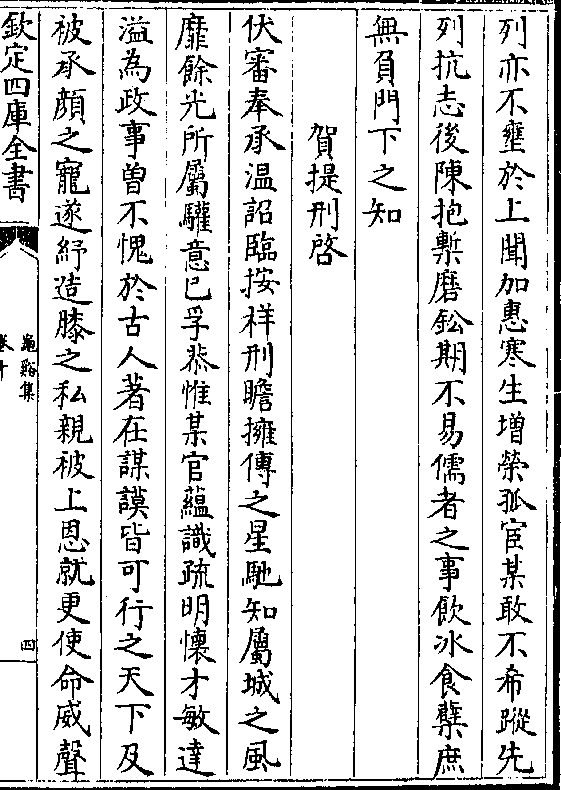 列亦不壅於上聞加惠寒生增榮孤宦某敢不希蹤先
列抗志後陳抱槧磨鈆期不易儒者之事飲冰食蘖庶
無負門下之知
賀提刑啓
伏審奉承温詔臨按祥刑瞻擁傳之星馳知屬城之風
靡餘光所屬驩意已孚恭惟某官藴識疏明懷才敏達
溢為政事曽不愧於古人著在謀謨皆可行之天下及
被承顔之寵遂紓造膝之私親被上恩就更使命威聲
欽定四庫全書
龜谿集
卷十
四